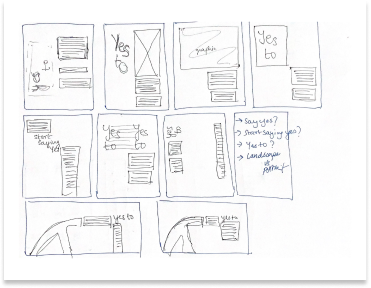 Yes
to
graphic
Yes
to
start
saying
yes
Yes Yes
to to
yes
to
→ Say yes?
→ Start saying yes?
→ Yes to?
→ Landscape
or
portrait
yes to
yes to